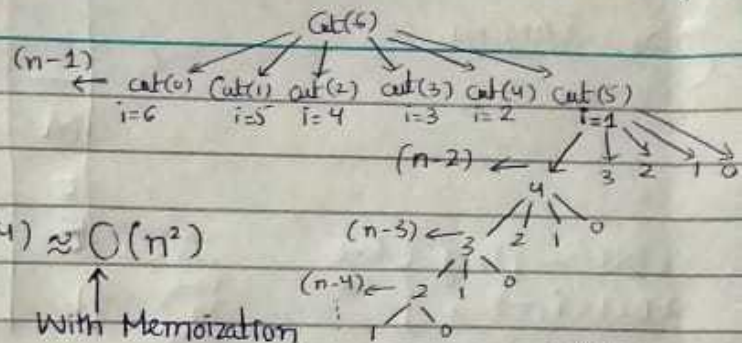 Cut(6)
(n-1) ← cut(0) Cut(1) cut(2) cut(3) cut(4) cut(5)
i=6 i=5 i=4 i=3 i=2 i=1
(n-2) ← 4 3 2 1 0
4) ≈ O(n²) (n-3) ← 3 2 1 0
(n-4) ← 2 1 0
⋮ 1 0
With Memoization